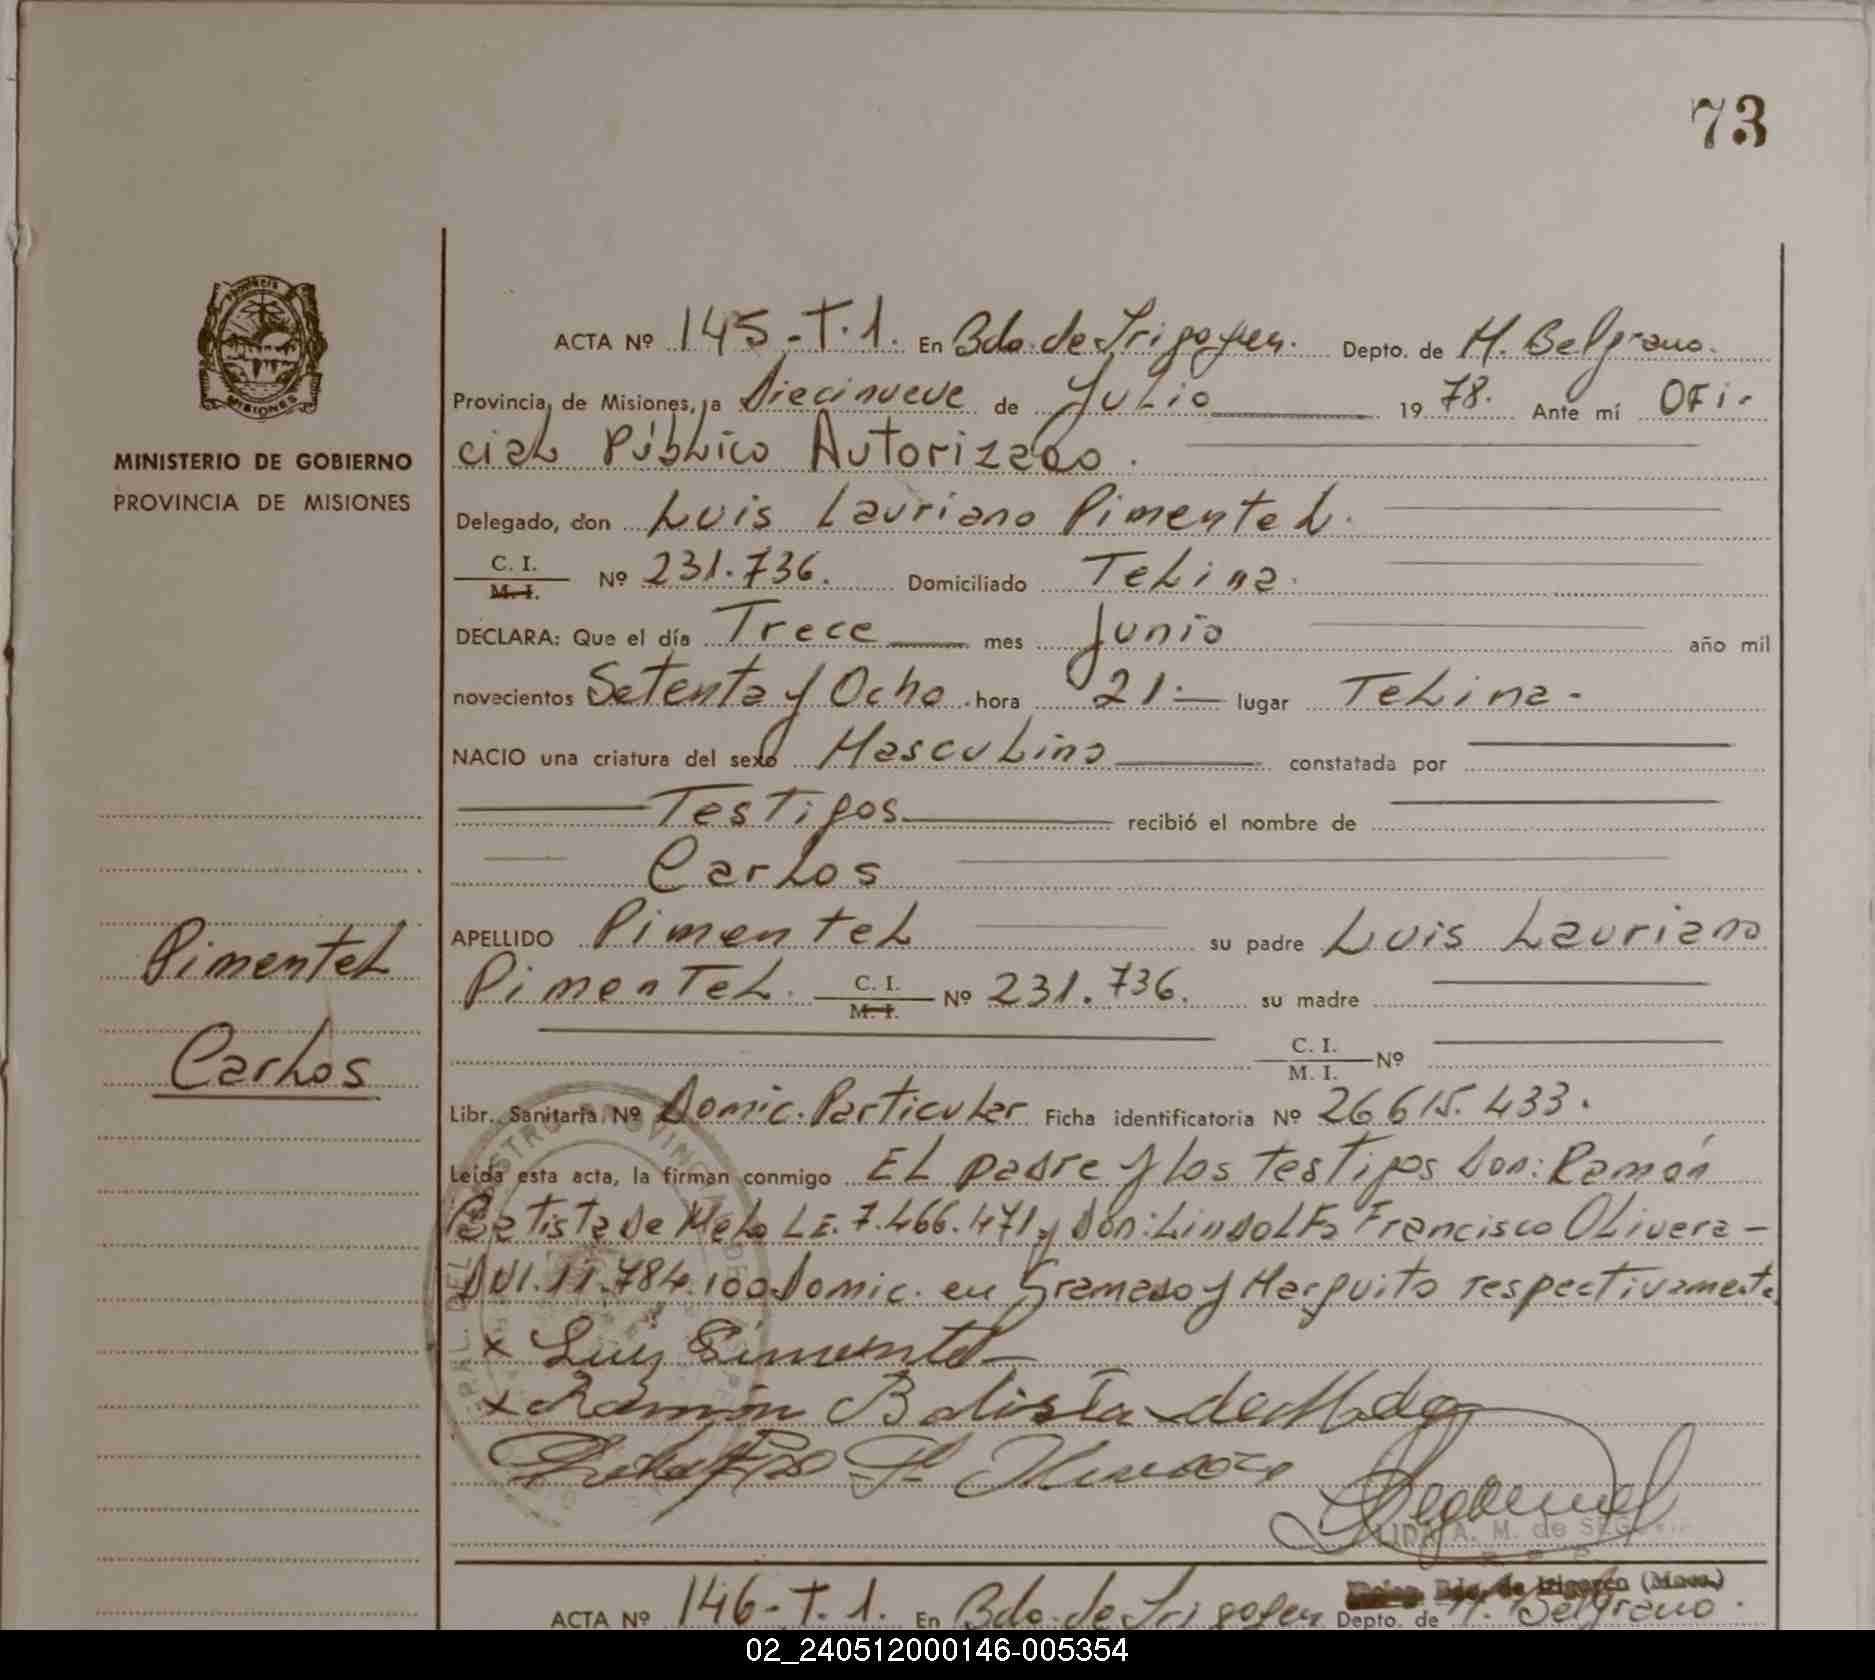 73
ACTA Nº 145-T.1. En Bdo. de Irigoyen. Depto. de M. Belgrano.
Provincia de Misiones, a Diecinueve de Julio 1978. Ante mí Ofi-
cial Público Autorizado.
MINISTERIO DE GOBIERNO
PROVINCIA DE MISIONES
Delegado, don Luis Lauriano Pimentel.
C. I.
M. I. Nº 231.736. Domiciliado Telina.
DECLARA: Que el día Trece mes Junio año mil
novecientos Setenta y Ocho hora 21:- lugar Telina-
NACIO una criatura del sexo Masculino constatada por
Testigos recibió el nombre de
Carlos
APELLIDO Pimentel su padre Luis Lauriano
Pimentel
Pimentel. C. I.
M. I. Nº 231.736. su madre
Carlos
C. I.
M. I. Nº
Libr. Sanitaria Nº Domic. Particular Ficha identificatoria Nº 26615.433.
Leída esta acta, la firman conmigo El padre y los testigos Don: Ramón
Batista de Melo L.E. 7.466.471 y Don: Lindolfo Francisco Olivera-
DNI. 11.784.100 Domic. en Gramado y Marguito respectivamente
x Luis Pimentel
x Ramón Batista de Melo
LIDA A. M. de
MISIONES
ACTA Nº 146-T.1. En Bdo. de Irigoyen Depto. de M. Belgrano.
02_240512000146-005354